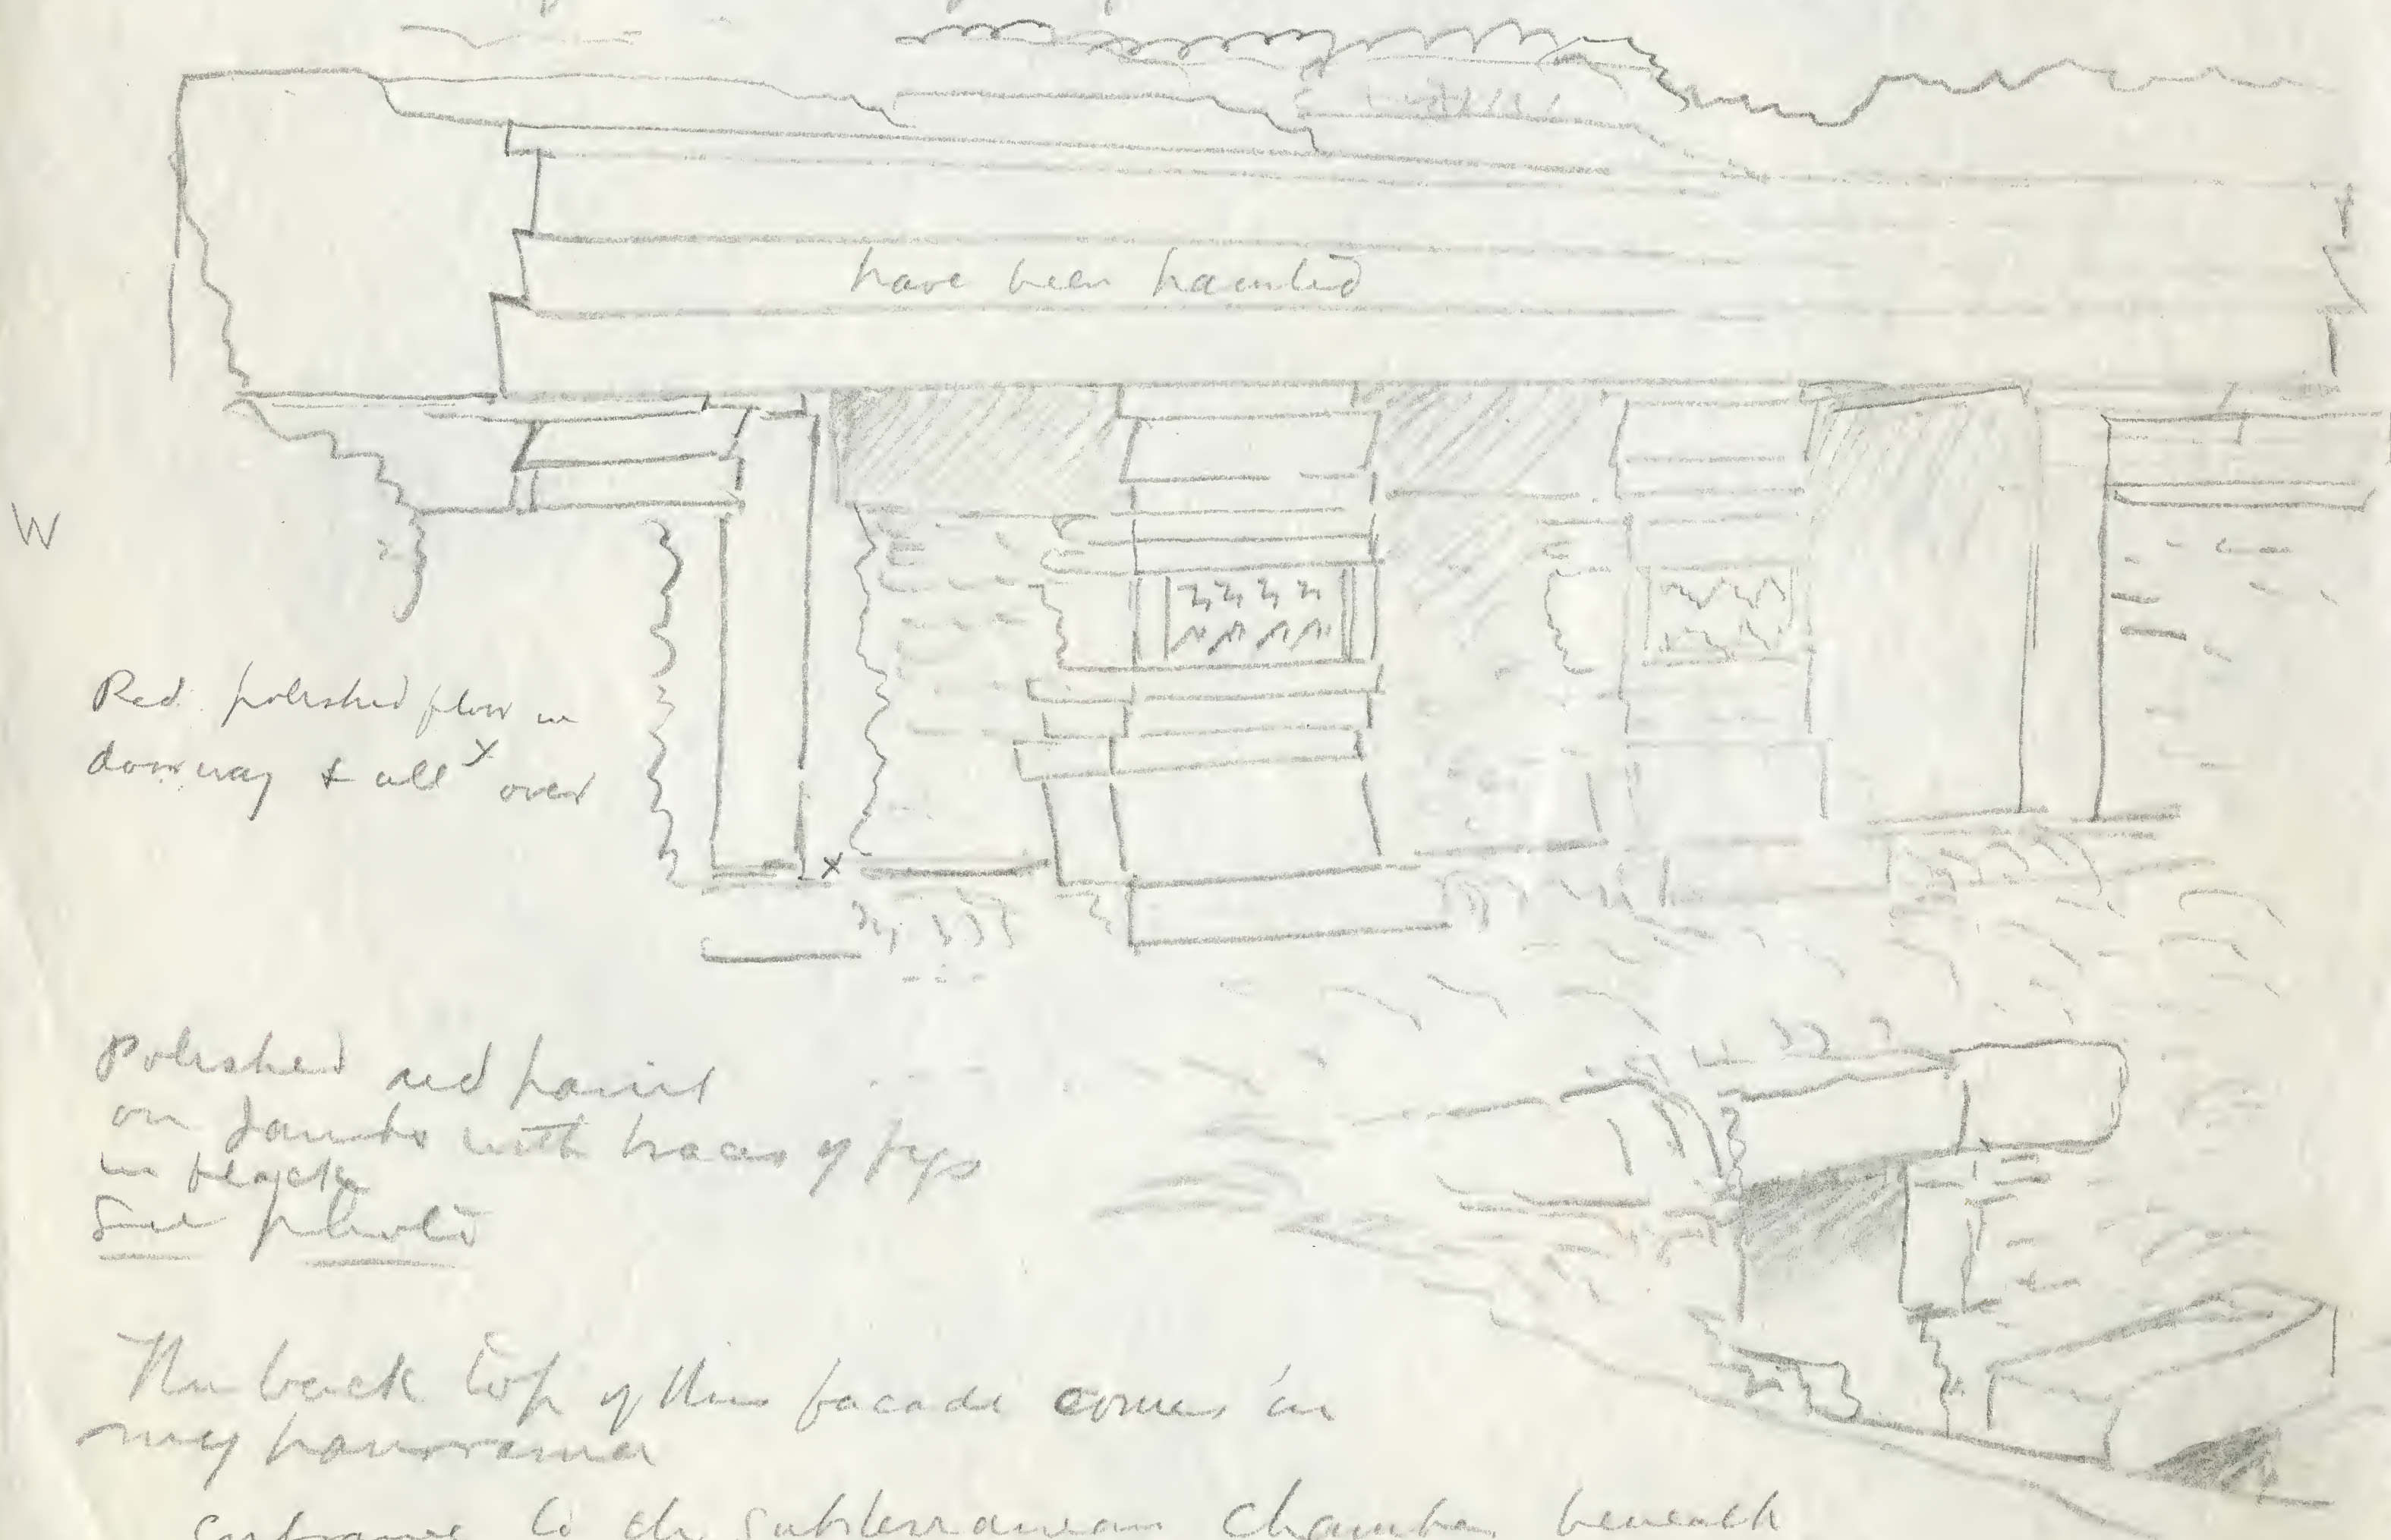 have been painted
W
Red polished floor in
doorway & all x over
x
Polished red paint
on Jambs with traces of figs
in black
See photo
The back top of this facade comes in
my panorama
Entrance to the subterranean chamber beneath